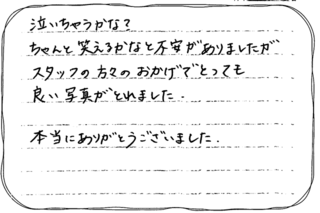 泣いちゃうかな?
ちゃんと笑えるかなと不安がありましたが
スタッフの方々のおかげでとっても
良い写真がとれました.
本当にありがとうございました.